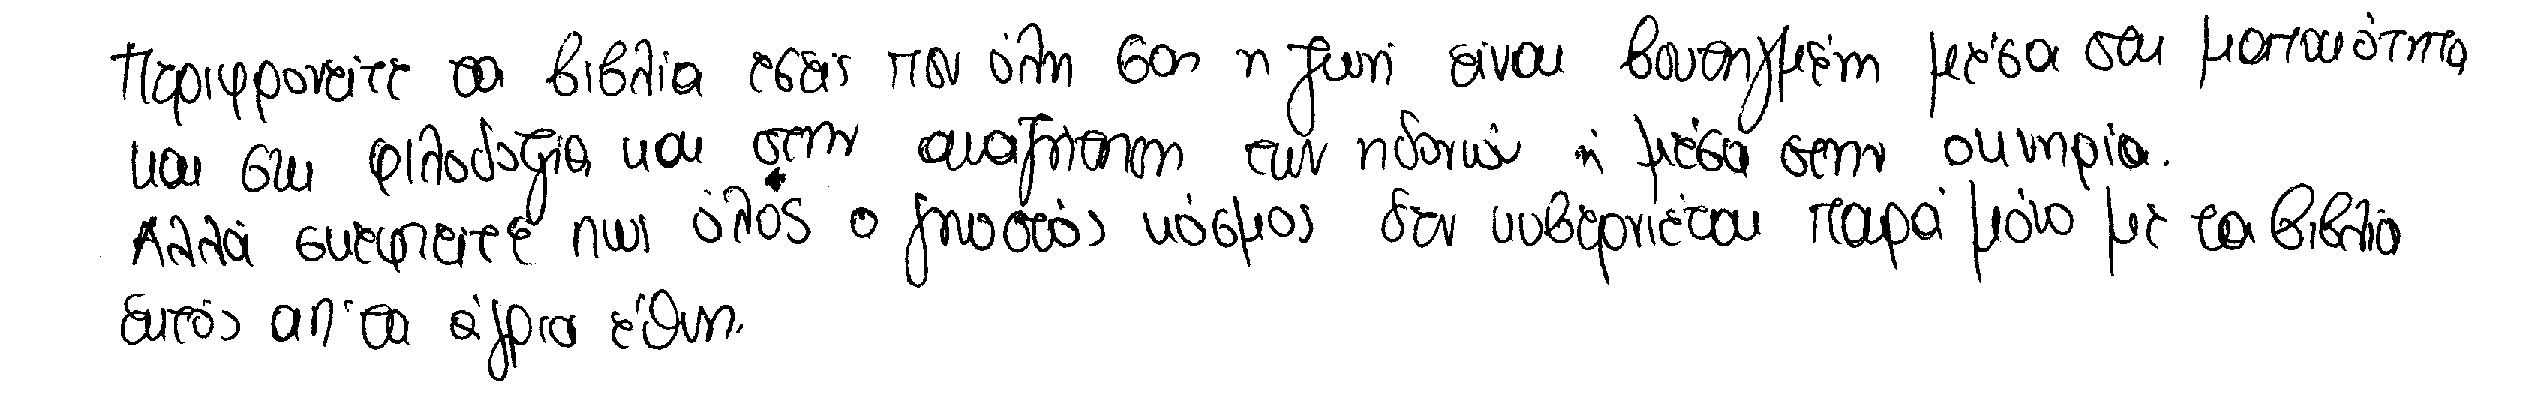 Περιφρονείτε τα βιβλία εσείς που όλη σας η ζωή είναι βουτηγμένη μέσα στη ματαιότητα
και στη φιλοδοξία και στην αναζήτηση των ηδονών ή μέσα στην οκνηρία.
Αλλά σκεφτείτε πως όλος ο γνωστός κόσμος δεν κυβερνιέται παρά μόνο με τα βιβλία
εκτός απ' τα άγρια έθνη.